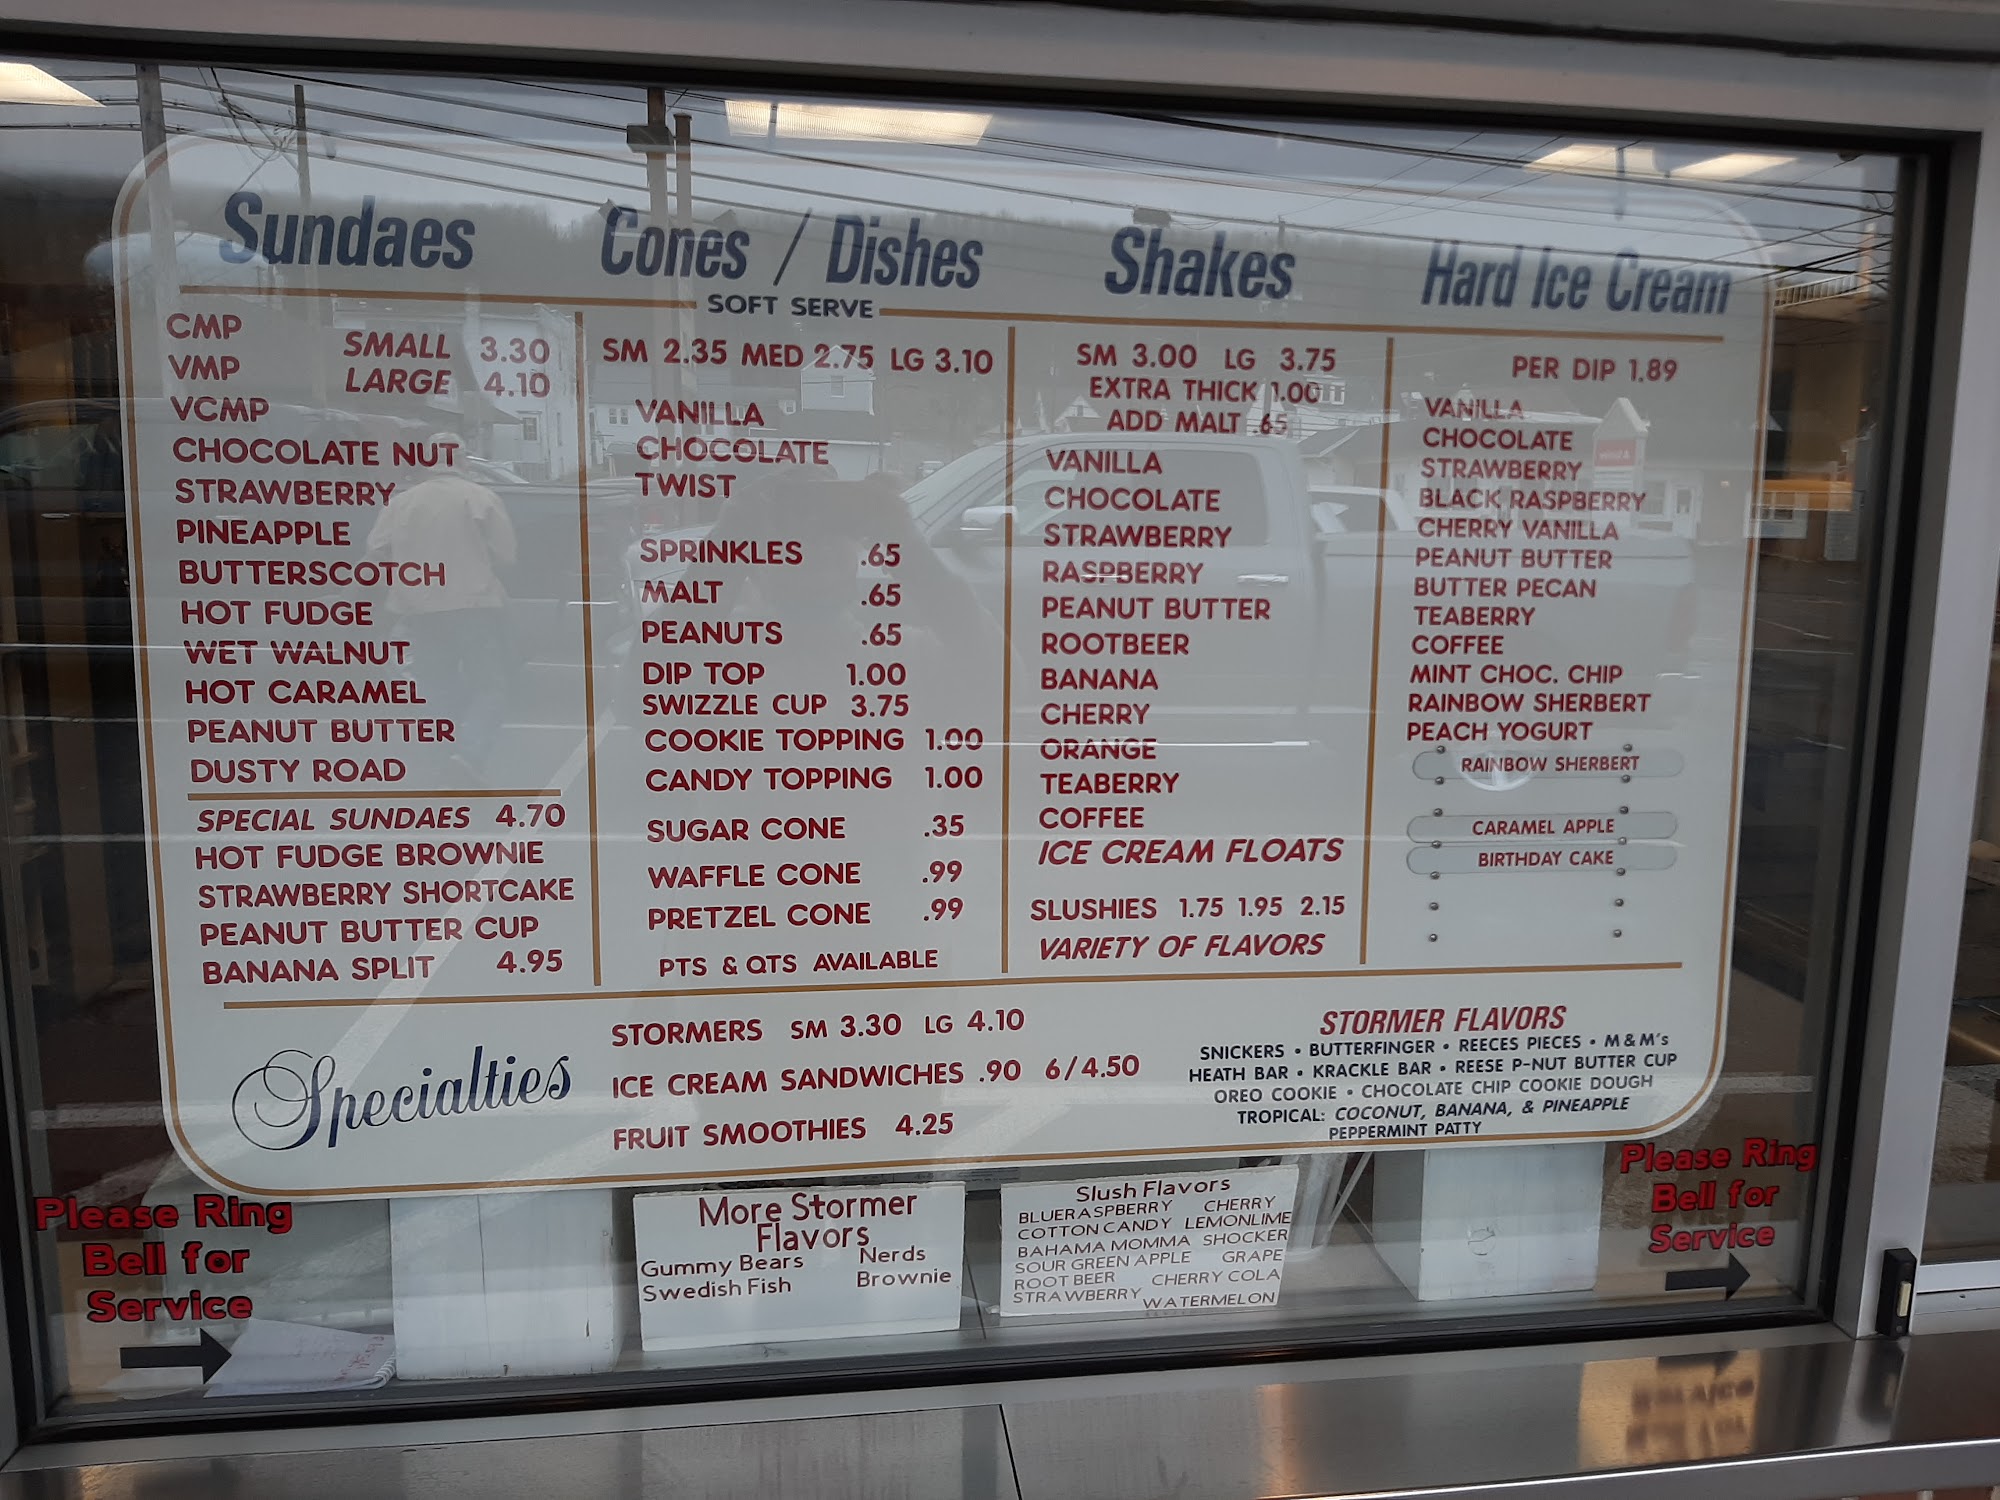 Sundaes
CMP
VMP
SMALL 3.30
LARGE 4.10
VCMP
CHOCOLATE NUT
STRAWBERRY
PINEAPPLE
BUTTERSCOTCH
HOT FUDGE
WET WALNUT
HOT CARAMEL
PEANUT BUTTER
DUSTY ROAD
SPECIAL SUNDAES 4.70
HOT FUDGE BROWNIE
STRAWBERRY SHORTCAKE
PEANUT BUTTER CUP
BANANA SPLIT 4.95
Cones / Dishes
SOFT SERVE
SM 2.35 MED 2.75 LG 3.10
VANILLA
CHOCOLATE
TWIST
SPRINKLES .65
MALT .65
PEANUTS .65
DIP TOP 1.00
SWIZZLE CUP 3.75
COOKIE TOPPING 1.00
CANDY TOPPING 1.00
SUGAR CONE .35
WAFFLE CONE .99
PRETZEL CONE .99
PTS & QTS AVAILABLE
Shakes
SM 3.00 LG 3.75
EXTRA THICK 1.00
ADD MALT .65
VANILLA
CHOCOLATE
STRAWBERRY
RASPBERRY
PEANUT BUTTER
ROOTBEER
BANANA
CHERRY
ORANGE
TEABERRY
COFFEE
ICE CREAM FLOATS
SLUSHIES 1.75 1.95 2.15
VARIETY OF FLAVORS
Hard Ice Cream
PER DIP 1.89
VANILLA
CHOCOLATE
STRAWBERRY
BLACK RASPBERRY
CHERRY VANILLA
PEANUT BUTTER
BUTTER PECAN
TEABERRY
COFFEE
MINT CHOC. CHIP
RAINBOW SHERBERT
PEACH YOGURT
RAINBOW SHERBERT
CARAMEL APPLE
BIRTHDAY CAKE
Specialties
STORMERS SM 3.30 LG 4.10
ICE CREAM SANDWICHES .90 6/4.50
FRUIT SMOOTHIES 4.25
STORMER FLAVORS
SNICKERS • BUTTERFINGER • REECES PIECES • M&M's
HEATH BAR • KRACKLE BAR • REESE P-NUT BUTTER CUP
OREO COOKIE • CHOCOLATE CHIP COOKIE DOUGH
TROPICAL: COCONUT, BANANA, & PINEAPPLE
PEPPERMINT PATTY
Please Ring
Bell for
Service
More Stormer
Flavors
Gummy Bears Nerds
Swedish Fish Brownie
Slush Flavors
BLUERASPBERRY CHERRY
COTTON CANDY LEMONLIME
BAHAMA MOMMA SHOCKER
SOUR GREEN APPLE GRAPE
ROOT BEER CHERRY COLA
STRAWBERRY WATERMELON
Please Ring
Bell for
Service